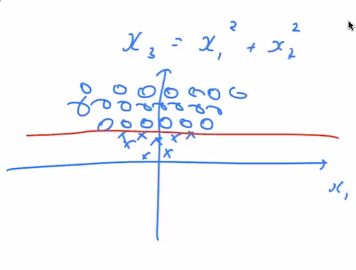 x₃ = x₁² + x₂²
x₁